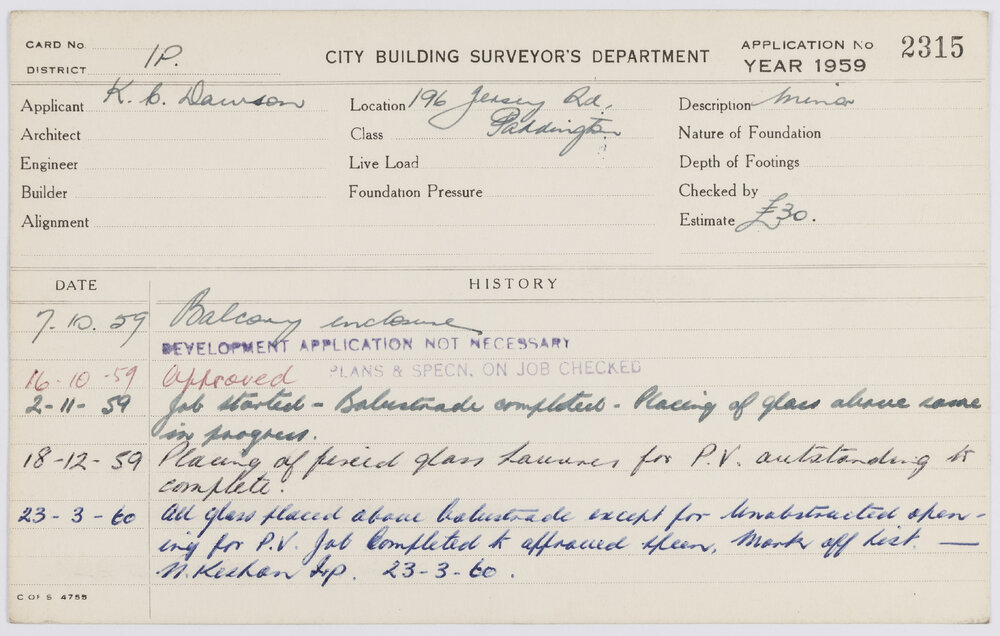 CARD No. 1P.
DISTRICT
CITY BUILDING SURVEYOR'S DEPARTMENT
APPLICATION No 2315
YEAR 1959
Applicant K. C. Dawson
Architect
Engineer
Builder
Alignment
Location 196 Jersey Rd,
Paddington
Class
Live Load
Foundation Pressure
Description Minor
Nature of Foundation
Depth of Footings
Checked by
Estimate £30.
DATE HISTORY
7.10.59 Balcony enclosure
DEVELOPMENT APPLICATION NOT NECESSARY
16-10-59 Approved PLANS & SPECN. ON JOB CHECKED
2-11-59 Job started - Balustrade completed - Placing of glass above same
in progress.
18-12-59 Placing of fixed glass Louvres for P.V. outstanding to
complete.
23-3-60 All glass placed above balustrade except for Unobstructed open-
ing for P.V. Job Completed to approved specn, Mark off List. —
Insp. 23-3-60.
C OF S 4755